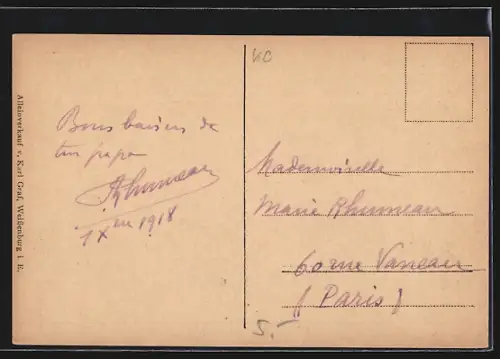 Alleinverkauf v. Karl Graf, Weißenburg i. E.
Bons baisers de
ton papa
Rhumeau
1918
Mademoiselle
Marie Rhumeau
60 rue Vaneau
(Paris)
5.-